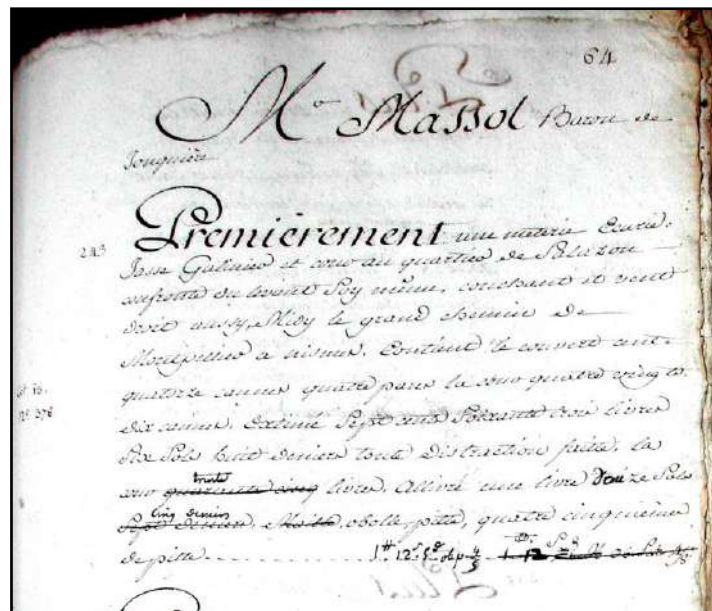 64
Mr Massol Baron de
Jonquière
243
Premièrement une meterie Ecurie,
Jasse Galinier et cour au quartier de Salazon
confronte du levant Soy même, couchant et vent
droit aussy, Midy le grand chemin de
Montpelier a nismes. Contient le couvert cent
quatorze cannes quatre pans la cour quatre vingts
dix cannes. Extimé Sept cens Soixante trois livres
n° 376
Six Sols huit deniers toute distraction faite, la
trente
cour quarante cinq livres. Allivré une livre Douze Sols
Cinq deniers
Sept deniers, Maille, obolle pitte, quatre cinquième
de pitte 1# 12s 5d ob p 4/5